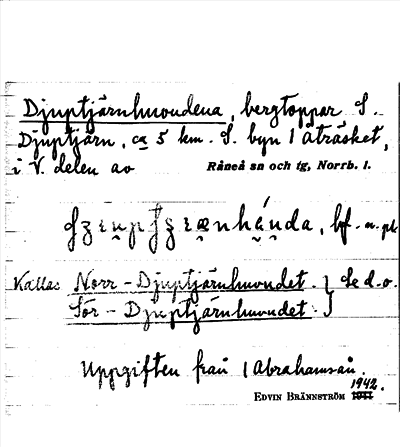 Djuptjärnhuvudena, bergtoppar S.
Djuptjärn, ca 5 km. S. byn 1 Åträsket,
i V. delen av Råneå sn och tg, Norrb. l.
bf. n. pl.
Kallas Norr-Djuptjärnhuvudet } Se d.o.
Sör-Djuptjärnhuvudet
Uppgiften från 1 Abrahamsån.
EDVIN BRÄNNSTRÖM 1942.